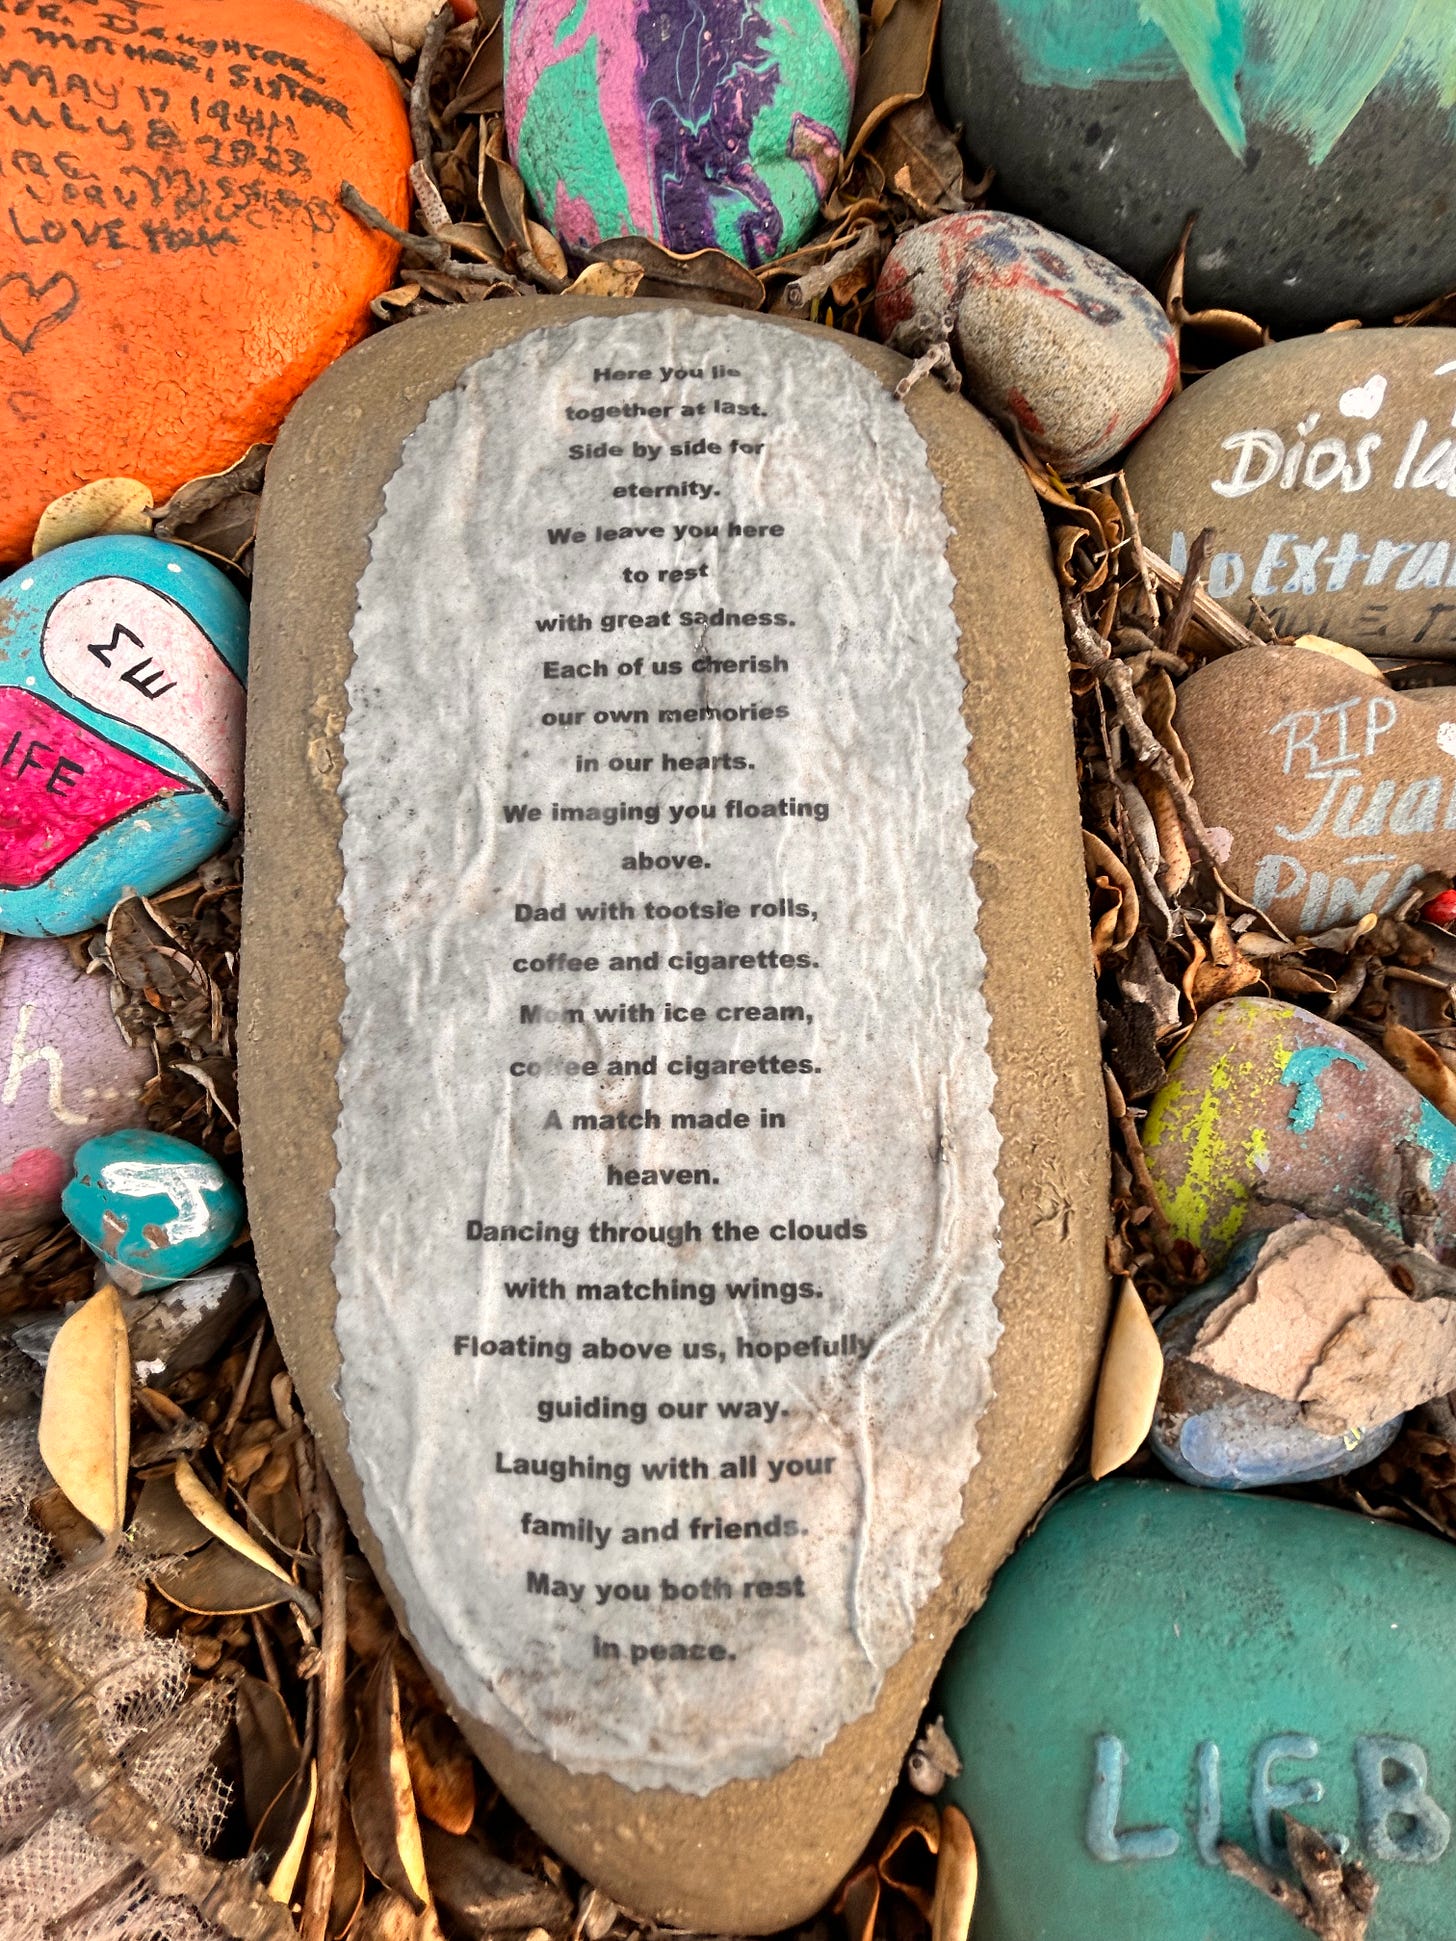 Daughter
MOTHER, SISTER
MAY 17 1944
JULY 8 2023
LOVE
Here you lie
together at last.
Side by side for
eternity.
We leave you here
to rest
with great sadness.
Each of us cherish
our own memories
in our hearts.
We imaging you floating
above.
Dad with tootsie rolls,
coffee and cigarettes.
Mom with ice cream,
coffee and cigarettes.
A match made in
heaven.
Dancing through the clouds
with matching wings.
Floating above us, hopefully
guiding our way.
Laughing with all your
family and friends.
May you both rest
in peace.
Dios la
Lo Extra
RIP
Jua
PIÑ
ME
IFE
h
LIEB